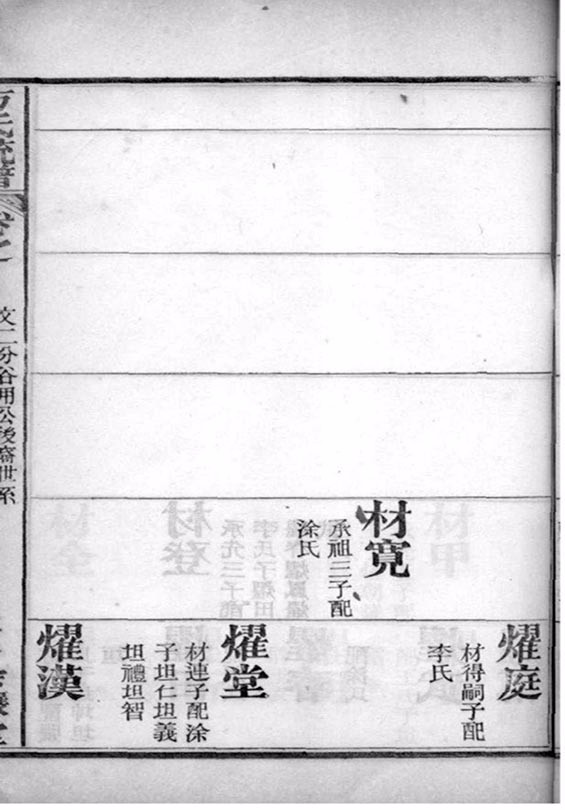 材寬
承祖三子配
涂氏
燿庭
材得嗣子配
李氏
燿堂
材連子配涂
子坦仁坦義
坦禮坦智
燿漢
文二分谷用公後裔世系